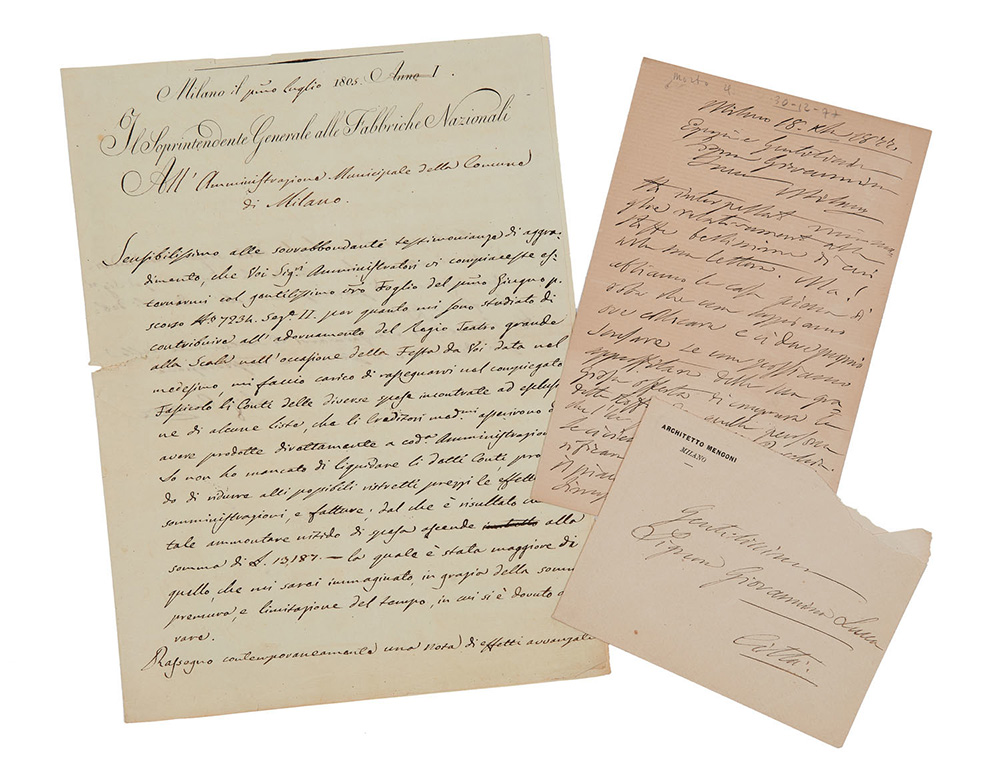 Milano il pmo luglio 1805. Anno I.
Il Soprintendente Generale alle Fabbriche Nazionali
All' Amministrazione Municipale della Comune
di Milano.
Sensibilissimo alle sovrabbondante testimonianze di aggra-
dimento, che Voi Sigri Amministratori vi compiaceste es-
ternarmi col gentilissimo vro Foglio del pmo Giugno p.
scorso No 7234. Sez. II. per quanto mi sono studiato di
contribuire all' adornamento del Regio Teatro grande
alla Scala nell' occasione della Festa da Voi data nel
medesimo, mi faccio carico di rassegnarvi nel compiegato
Fassicolo li Conti delle diverse spese incontrate ad esclusio
ne di alcune liste, che li Creditori medmi asserirono
avere prodotte direttamente a coda Amministrazion
Io non ho mancato di liquidare li detti Conti, pro
do di ridurre alli possibili ristretti prezzi le effett
somministrazioni, e fatture; dal che è risultato
tale ammontare nitido di spesa ascende alla
somma di L. 13187. — la quale è stata maggiore di
quello che mi sarei immaginato, in grazia della somm
premura, e limitazione del tempo, in cui si è dovuto o
rare.
Rassegno contemporaneamente una nota di effetti avvanzati
morto il 30-12-77
Milano 18. Xbre 1877.
Egregio e gentilissimo
Signor Giovannino
Milano
Ho interpellat mia
glie relativamente alla
bellissima di cui
nella sua lettera. Ma!
abbiamo la casa piena di
robe che non sappiamo
ove collocare e ci deve perciò
scusare se non possiamo
approfittare della sua gra
offerta di
ARCHITETTO MENGONI
MILANO
Gentilissimo
Signor Giovannino Lucca
Città.